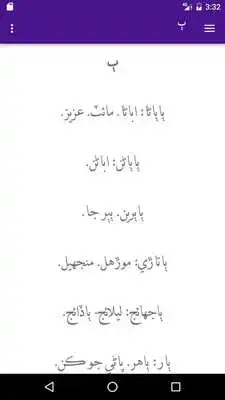 3:32
ٻ
ٻ
ٻاٻاڻا: اباڻا. مائٽ. عزيز.
ٻاٻاڻن: اباڻن.
ٻاٻرين. ٻٻر جا.
ٻاتاڙي: موڙهل. منجهيل.
ٻاجهائج: ليلائج. ٻاڏائج.
ٻار: ٻاهر. پاڻي جو ڪن.